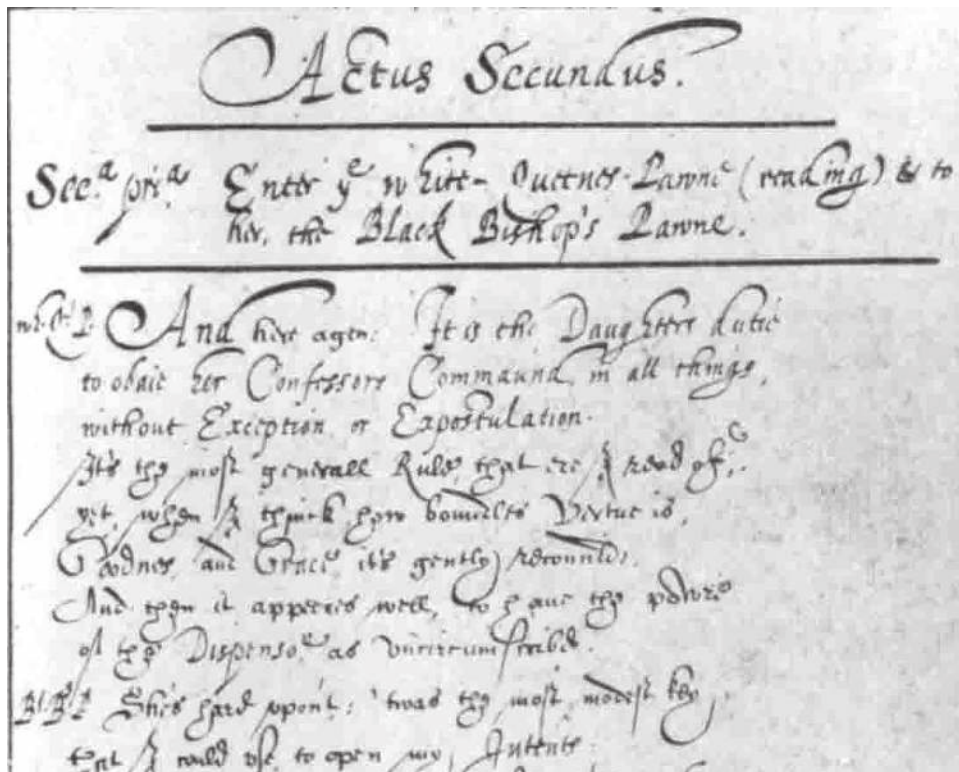 Actus Secundus.
Sec.ª pri.ª Enter yᵉ white-Queenes-Pawne (reading) & to
her, the Black Bishop's Pawne.
wh. Q. P. And here agen: It is the Daughters dutie
to obaie her Confessors Commaund in all things,
without Exception or Expostulation.
It's the most generall Rule, that ere I read of,
yet, when I thinck how boundles Vertue is,
Goodnes, and Grace, it's gently reconcild;
And then it appeeres well, to haue the powre
of the Dispenser as vncircumscribd.
Bl. B. P. Shee's hard vpon't; 'twas the most modest key,
that I could vse to open my Intents: